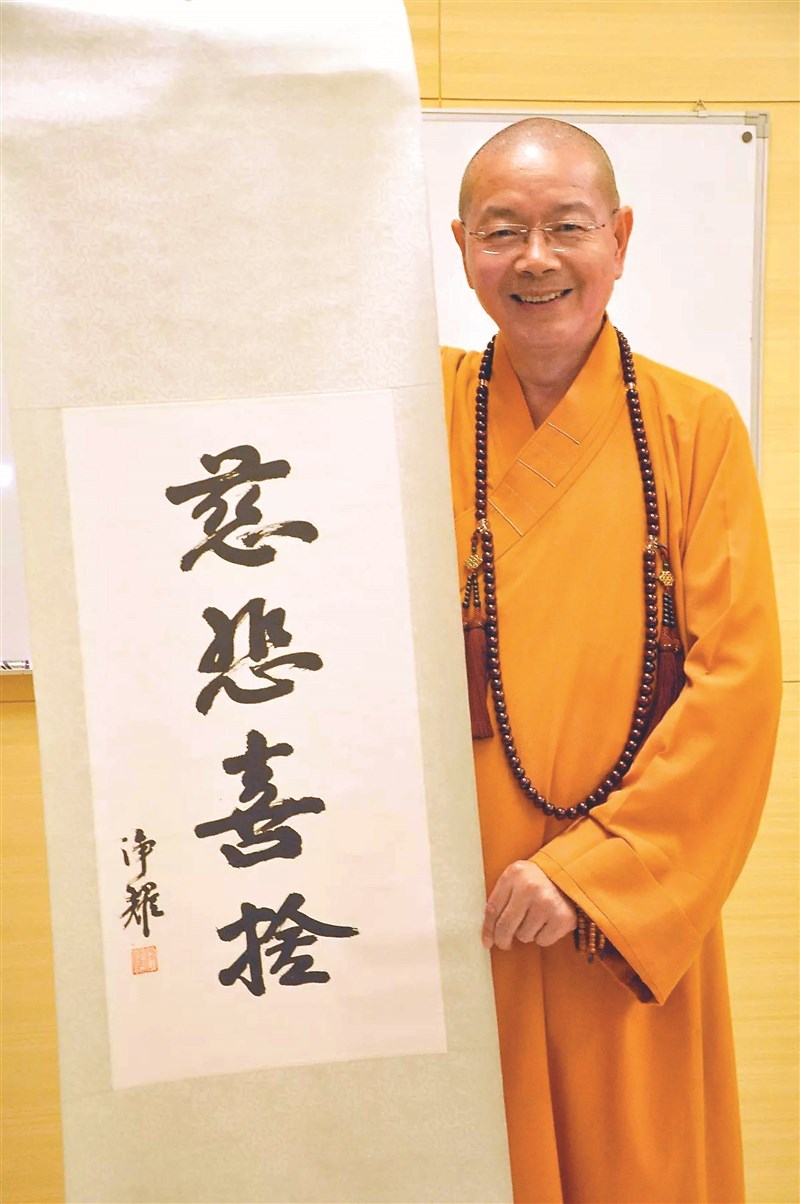 慈悲喜捨
淨耀